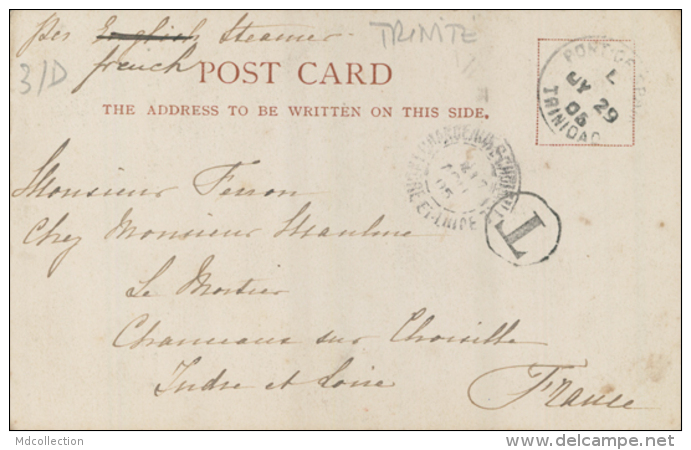 Per English Steamer
french
TRINITE
3/D
POST CARD
THE ADDRESS TO BE WRITTEN ON THIS SIDE.
L
JY 29
05
TRINIDAD
T
Monsieur Ferron
Chez Monsieur
Le Mortier
Chanceaux sur Choisille
Indre et Loire
France
Mdcollection
www.delcampe.net